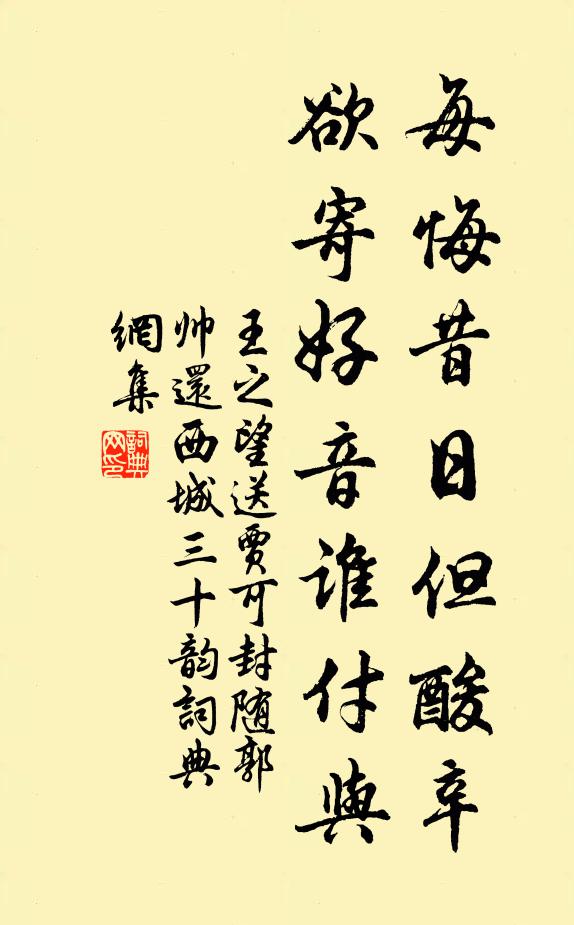 每悔昔日但酸辛
欲寄好音谁付與
王之望送賈可封随郭
帅還西城三十韵詞典
網集
詞典
网印